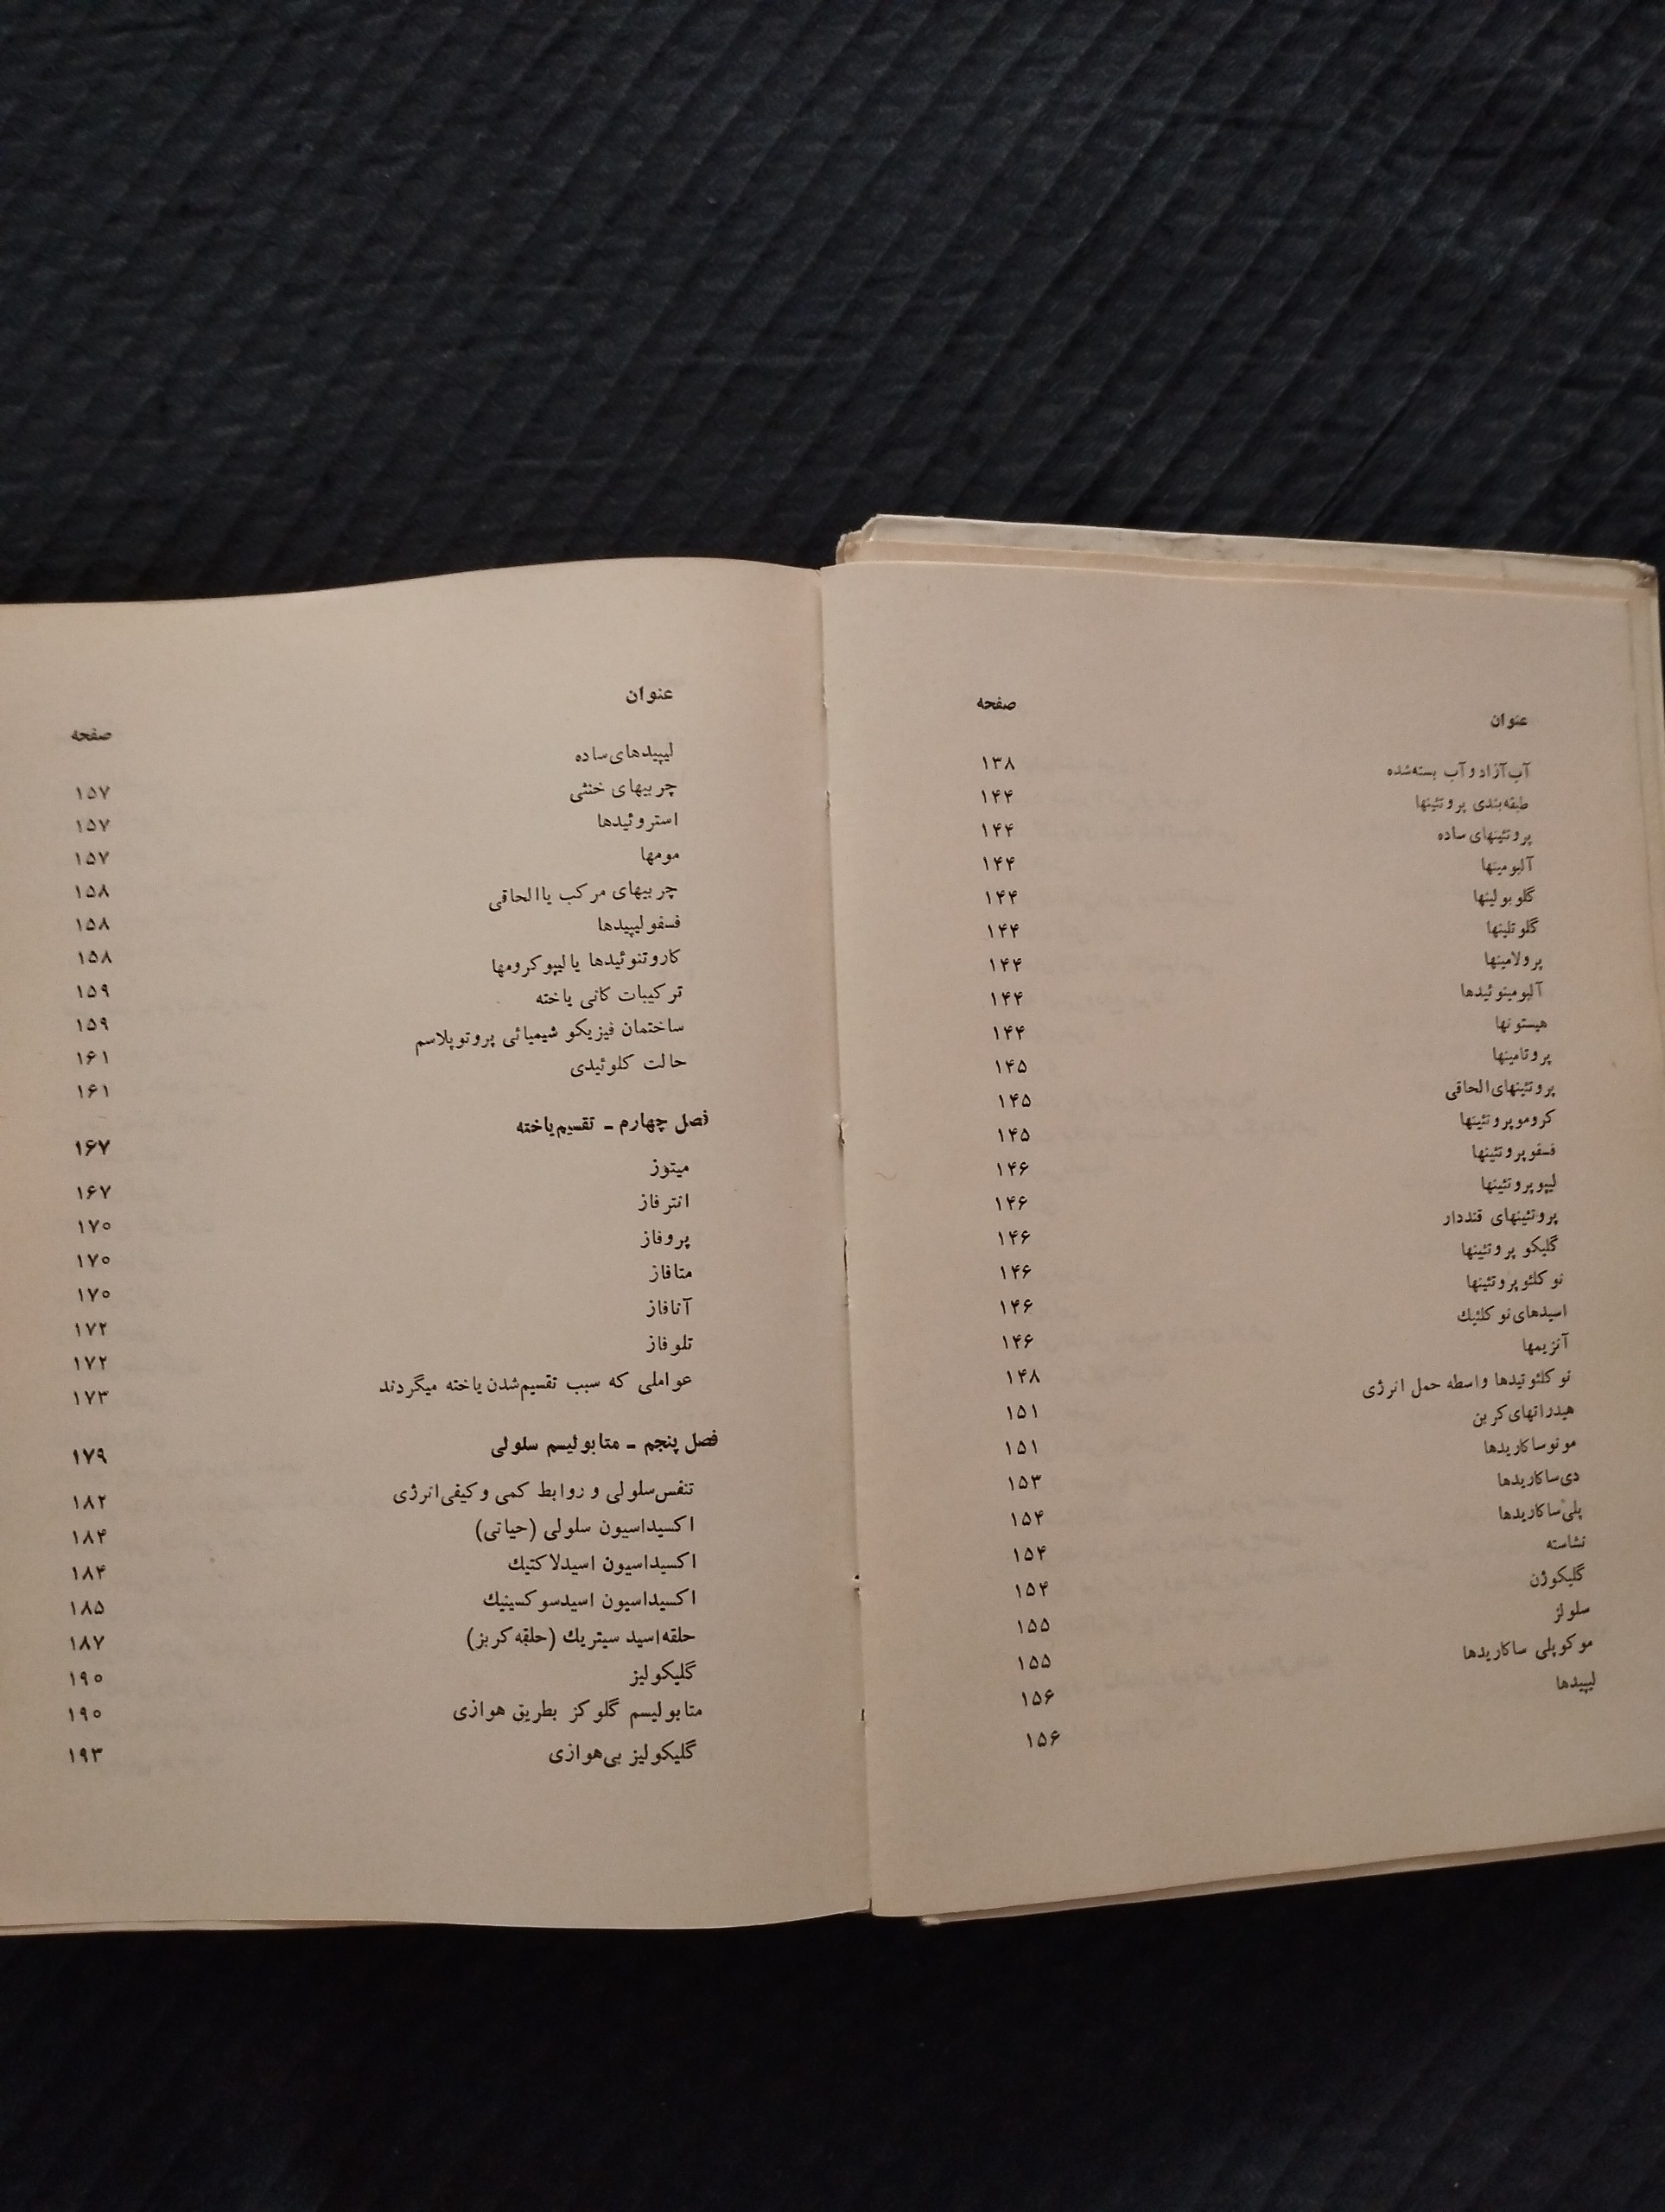 عنوان صفحه
آب آزاد و آب بسته‌شده ۱۳۸
طبقه‌بندی پروتئینها ۱۴۴
پروتئینهای ساده ۱۴۴
آلبومینها ۱۴۴
گلوبولینها ۱۴۴
گلوتلینها ۱۴۴
پرولامینها ۱۴۴
آلبومینوئیدها ۱۴۴
هیستونها ۱۴۴
پروتامینها ۱۴۵
پروتئینهای الحاقی ۱۴۵
کروموپروتئینها ۱۴۵
فسفوپروتئینها ۱۴۶
لیپوپروتئینها ۱۴۶
پروتئینهای قنددار ۱۴۶
گلیکو پروتئینها ۱۴۶
نوکلئوپروتئینها ۱۴۶
اسیدهای نوکلئیك ۱۴۶
آنزیمها ۱۴۸
نوکلئوتیدها واسطه حمل انرژی ۱۵۱
هیدراتهای کربن ۱۵۱
مونوساکاریدها ۱۵۳
دی‌ساکاریدها ۱۵۴
پلی‌ساکاریدها ۱۵۴
نشاسته ۱۵۴
گلیکوژن ۱۵۵
سلولز ۱۵۵
موکوپلی ساکاریدها ۱۵۶
لیپیدها ۱۵۶
عنوان صفحه
لیپیدهای ساده ۱۵۷
چربیهای خنثی ۱۵۷
استروئیدها ۱۵۷
مومها ۱۵۸
چربیهای مرکب یا الحاقی ۱۵۸
فسفولیپیدها ۱۵۸
کاروتنوئیدها یا لیپوکرومها ۱۵۹
ترکیبات کانی یاخته ۱۵۹
ساختمان فیزیکو شیمیائی پروتوپلاسم ۱۶۱
حالت کلوئیدی ۱۶۱
فصل چهارم ـ تقسیم یاخته ۱۶۷
میتوز ۱۶۷
انترفاز ۱۷۰
پروفاز ۱۷۰
متافاز ۱۷۰
آنافاز ۱۷۲
تلوفاز ۱۷۲
عواملی که سبب تقسیم‌شدن یاخته میگردند ۱۷۳
فصل پنجم ـ متابولیسم سلولی ۱۷۹
تنفس‌سلولی و روابط کمی و کیفی‌انرژی ۱۸۲
اکسیداسیون سلولی (حیاتی) ۱۸۴
اکسیداسیون اسیدلاکتیك ۱۸۴
اکسیداسیون اسیدسوکسینیك ۱۸۵
حلقه‌اسید سیتریك (حلقه‌کربز) ۱۸۷
گلیکولیز ۱۹۰
متابولیسم گلوکز بطریق هوازی ۱۹۰
گلیکولیز بی‌هوازی ۱۹۳